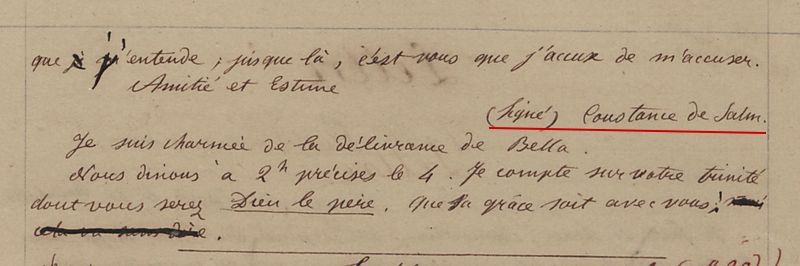 que j'entende ; jusque là, c'est vous que j'accuse de m'accuser.
Amitié et Estime
(Signé) Constance de Salm.
Je suis charmée de la délivrance de Bella.
Nous dinons à 2h précises le 4. Je compte sur votre trinité
dont vous serez Dieu le père. Que la grâce soit avec vous !